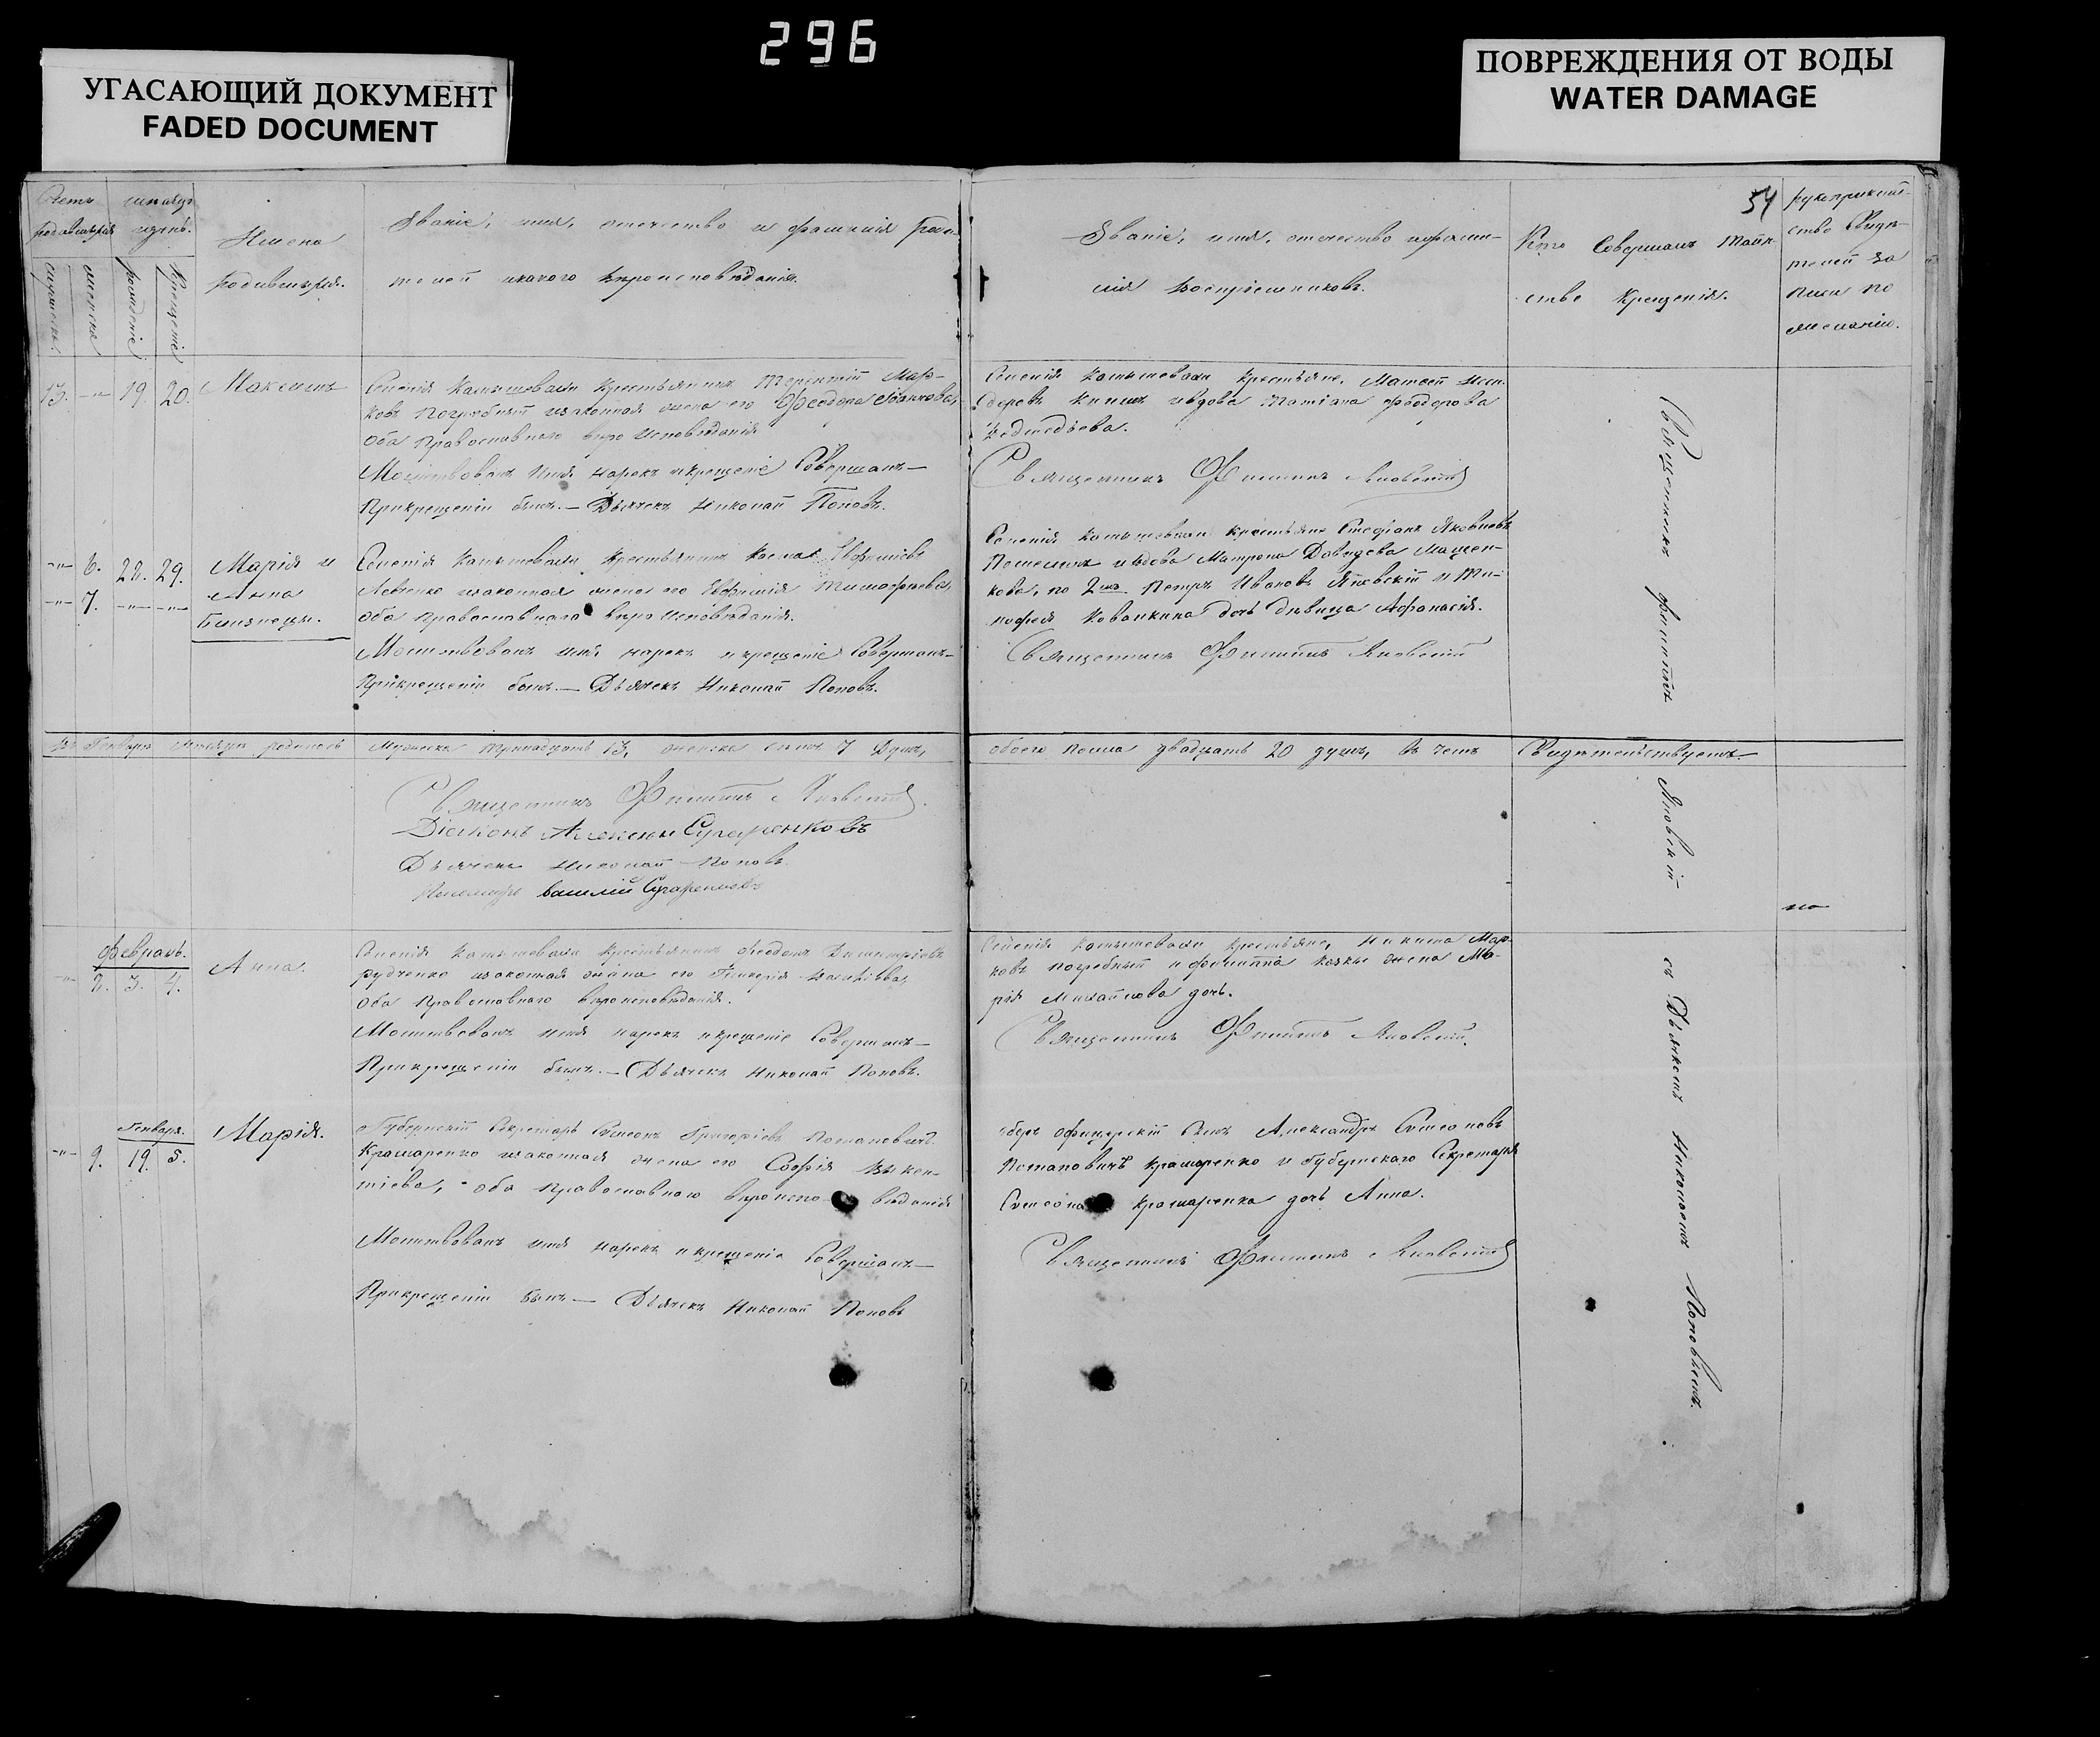 296
УГАСАЮЩИЙ ДОКУМЕНТ
FADED DOCUMENT
ПОВРЕЖДЕНИЯ ОТ ВОДЫ
WATER DAMAGE
54
Счетъ
родившихся
мужеска.
женска
рожденіе
крещеніе
Имена
родившихся.
Званіе, имя, отчество и фамилія роди-
телей и какого вѣроисповѣданія.
Званіе, имя, отчество и фами-
лія воспріемниковъ.
Кто совершалъ таин-
ство крещенія.
рукоприклад-
ство свидѣ-
телей за
писи по
желанію.
13. -"- 19. 20. Максимъ
Селенія Камышевахи крестьянинъ Терентій Мар-
ковъ Погребный и законная жена его Феодора Іоаннова,
оба православнаго вѣроисповѣданія
Молитвовалъ имя нарекъ и крещеніе совершалъ—
При крещеніи былъ.— Дьячекъ Николай Поповъ.
Селенія Камышевахи крестьяне, Матвей
и вдова Татіана Феодорова
Священникъ Филиппъ Яновскій
-"- 6. 22. 29. Марія и
-"- 7. -"- -"- Анна
близнецы.
Селенія Камышевахи крестьянинъ Косма Евфиміевъ
Левченко и законная жена его Евфимія Тимофѣева,
оба православнаго вѣроисповѣданія.
Молитвовалъ имя нарекъ и крещеніе совершалъ—
При крещеніи былъ.— Дьячекъ Николай Поповъ.
Селенія Камышевахи крестьяне Стефанъ Яковлевъ
и вдова Матрона Давидова Мащен-
кова, по 2мъ Петръ Ивановъ и Ти-
мофея Ковалкина дочь дѣвица Афанасія.
Священникъ Филиппъ Яновскій
Въ Генварѣ мѣсяцѣ родилось мужеска тринадцать 13, женска семь 7 душъ, обоего пола двадцать 20 душъ, въ чемъ свидѣтельствуемъ—
Священникъ Филиппъ Яновскій.
Діаконъ Алексѣй
Дьячекъ Николай Поповъ.
Пономарь Василій
Февраль.
-"- 8. 3. 4. Анна.
Селенія Камышевахи крестьянинъ Феодоръ Димитріевъ
Рудченко и законная жена его Гликерія
оба православнаго вѣроисповѣданія.
Молитвовалъ имя нарекъ и крещеніе совершалъ—
При крещеніи былъ.— Дьячекъ Николай Поповъ.
Селенія Камышевахи крестьяне, Никита Мар-
ковъ Погребный и Филиппа жена Ма-
рія Михайлова дочь.
Священникъ Филиппъ Яновскій.
Генваря.
-"- 9. 19. 5. Марія.
Губернскій Секретарь Симеонъ Григоріевъ Потаповичъ
Крамаренко и законная жена его Софія Викен-
тіева, оба православнаго вѣроисповѣданія
Молитвовалъ имя нарекъ и крещеніе совершалъ—
При крещеніи былъ— Дьячекъ Николай Поповъ
Оберъ офицерскій сынъ Александръ Симеоновъ
Потаповичъ Крамаренко и Губернскаго Секретаря
Симеона Крамаренка дочь Анна.
Священникъ Филиппъ Яновскій
Священникъ Филиппъ Яновскій съ Дьячкомъ Николаемъ Поповымъ.